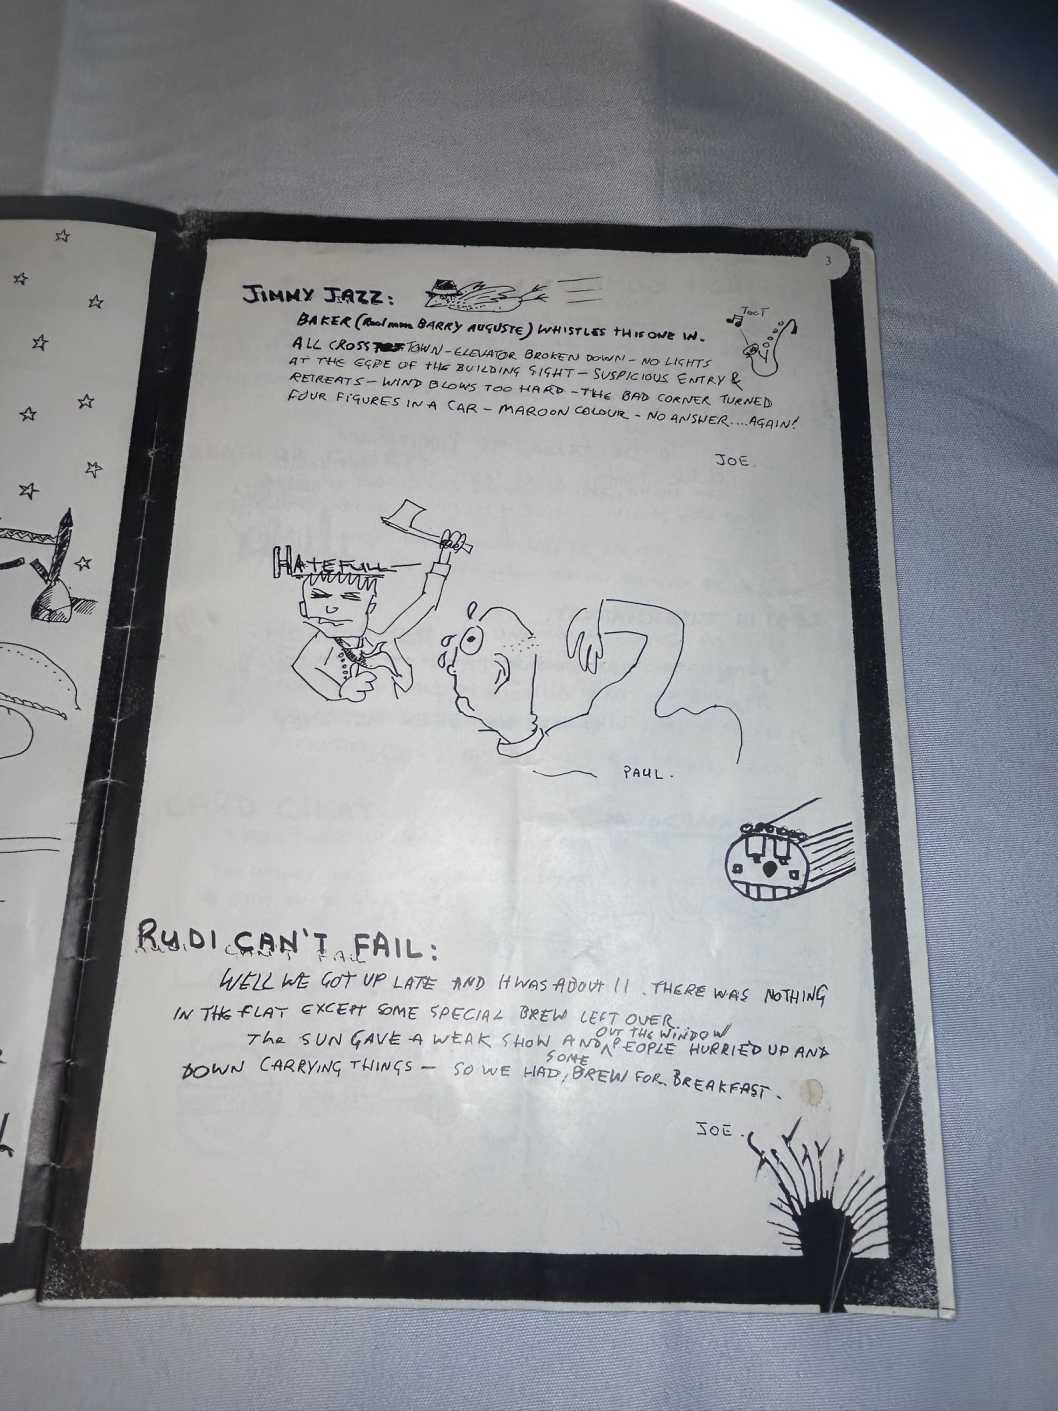 3
JIMMY JAZZ:
TOOT
BAKER (Real name BARRY AUGUSTE) WHISTLES THIS ONE IN.
ALL CROSS TOWN - ELEVATOR BROKEN DOWN - NO LIGHTS
AT THE EGDE OF THE BUILDING SIGHT - SUSPICIOUS ENTRY &
RETREATS - WIND BLOWS TOO HARD - THE BAD CORNER TURNED
FOUR FIGURES IN A CAR - MAROON COLOUR - NO ANSWER....AGAIN!
JOE.
HATEFULL
PAUL.
RUDI CAN'T FAIL:
RUDI CAN'T FAIL
WELL WE GOT UP LATE AND IT WAS ABOUT 11. THERE WAS NOTHING
IN THE FLAT EXCEPT SOME SPECIAL BREW LEFT OVER
OUT THE WINDOW
The SUN GAVE A WEAK SHOW AND PEOPLE HURRIED UP AND
SOME
DOWN CARRYING THINGS - SO WE HAD BREW FOR BREAKFAST.
JOE.